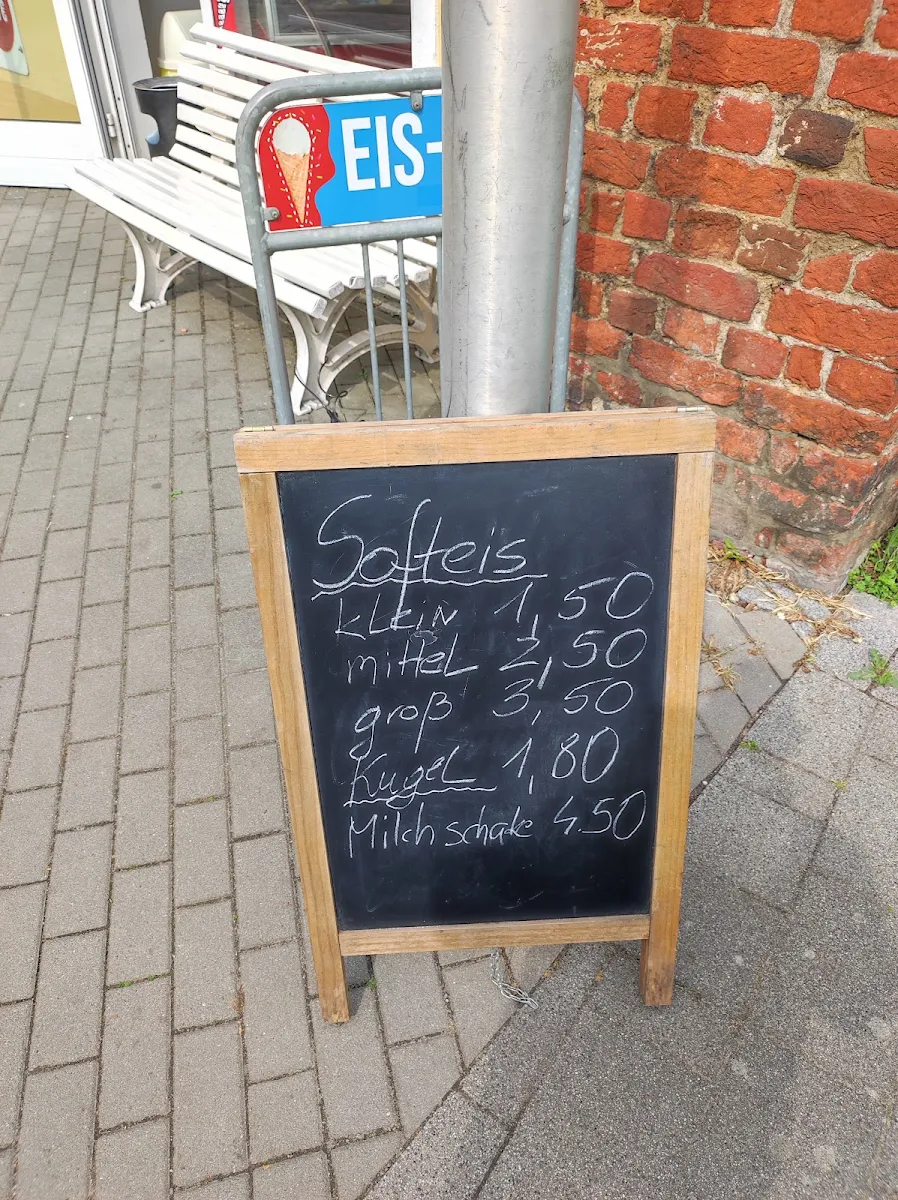 EIS-
Softeis
klein 1,50
mittel 2,50
groß 3,50
Kugel 1,80
Milchschake 4.50